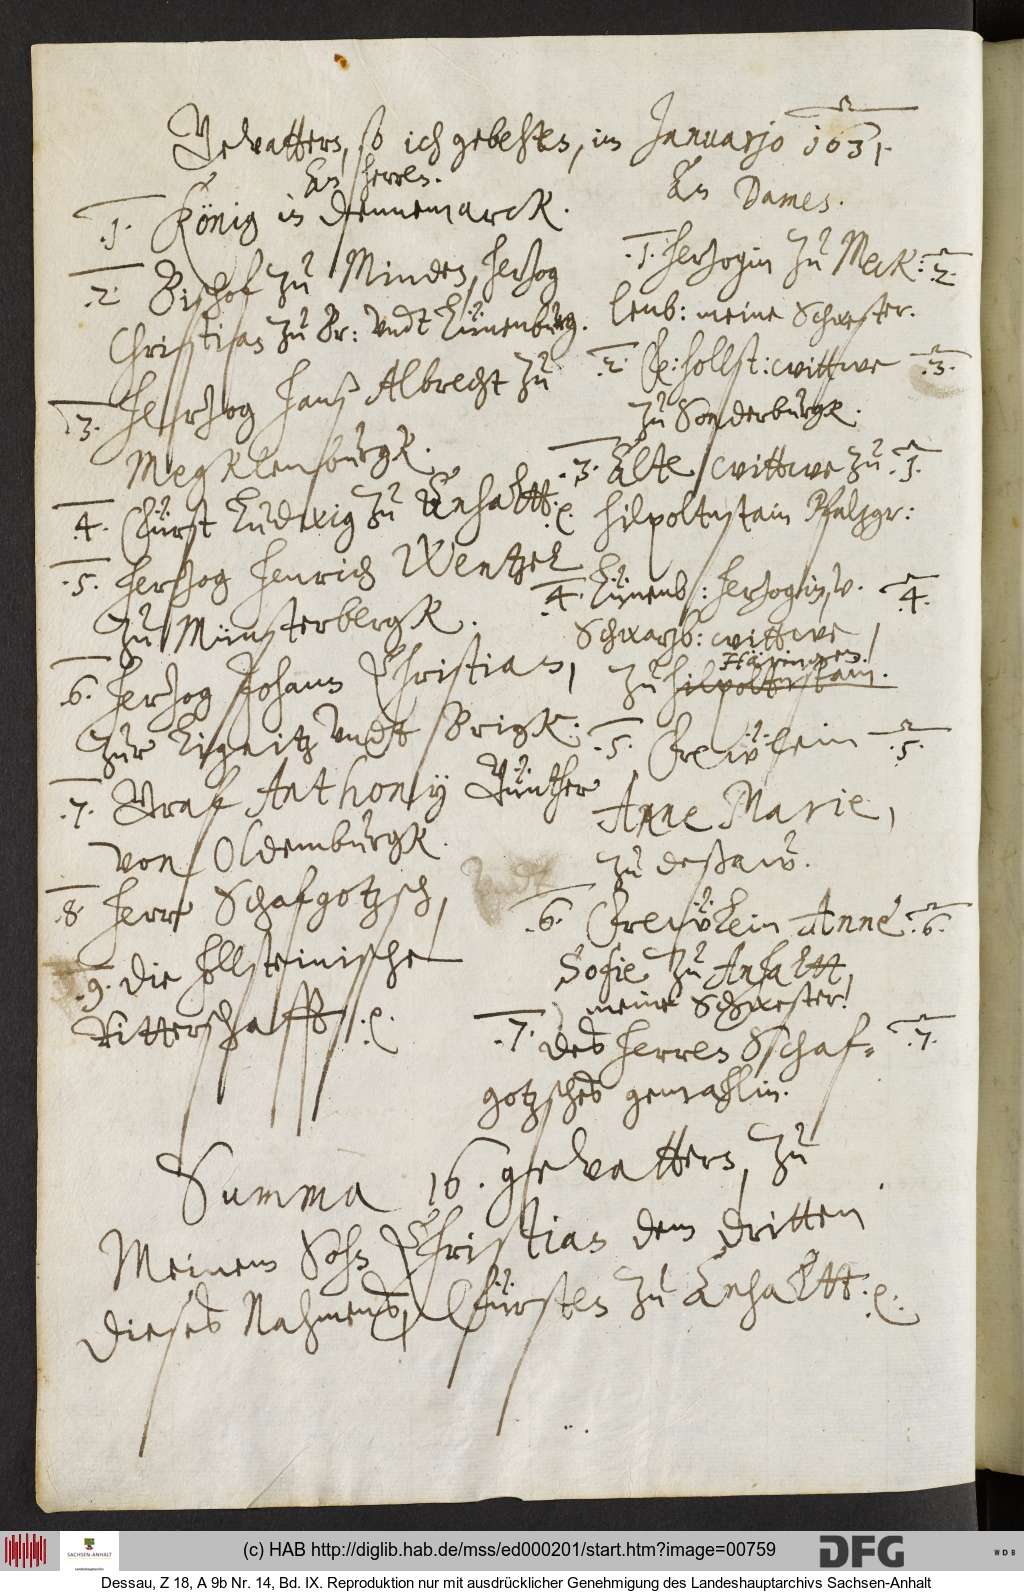 Gevattern, so ich gebehten, im Januario 1631.
An herren.
.1. König in Dennemarck.
.2. Bischof zu Minden, herzog
Christian zu Br: vndt Lünenburg.
.3. Herzog Hanß Albrecht zu
Megklenburgk.
.4. Fürst Ludwig zu Anhaltt. et
.5. Herzog Henrich Wentzel
zu Münsterbergk.
.6. Herzog Johann Christian,
zur Lignitz vndt Brigk.
.7. Graf Anthony Günther
von Oldemburgk.
.8. Herr Schafgotzsch,
.9. die hollsteinische
Ritterschafft. et
An Dames.
.1. Herzogin zu Meck: .2.
lenb: meine Schwester.
.2. F: hollst: wittwe .3.
zu Sonderburgk.
.3. Alte wittwe zu .1.
hilpoltnstain Pfalzgr:
.4. Lünenb: herzogin, v. .4.
Schwarzb: wittwe
Häringen!
zu hilpoltnstain.
.5. Frewlein .5.
Anne Marie,
zu deßaw.
vndt
.6. Frewlein Anne .6.
Sofie zu Anhaltt
meine Schwester!
.7. des herren Schaf= .7.
gotzsches gemahlin.
Summa 16. gevattern, zu
Meinem Sohn Christian dem dritten
dieses Nahmens, Fürsten zu Anhaltt. et
SACHSEN-ANHALT
Landeshauptarchiv
(c) HAB http://diglib.hab.de/mss/ed000201/start.htm?image=00759
DFG
WDB
Dessau, Z 18, A 9b Nr. 14, Bd. IX. Reproduktion nur mit ausdrücklicher Genehmigung des Landeshauptarchivs Sachsen-Anhalt